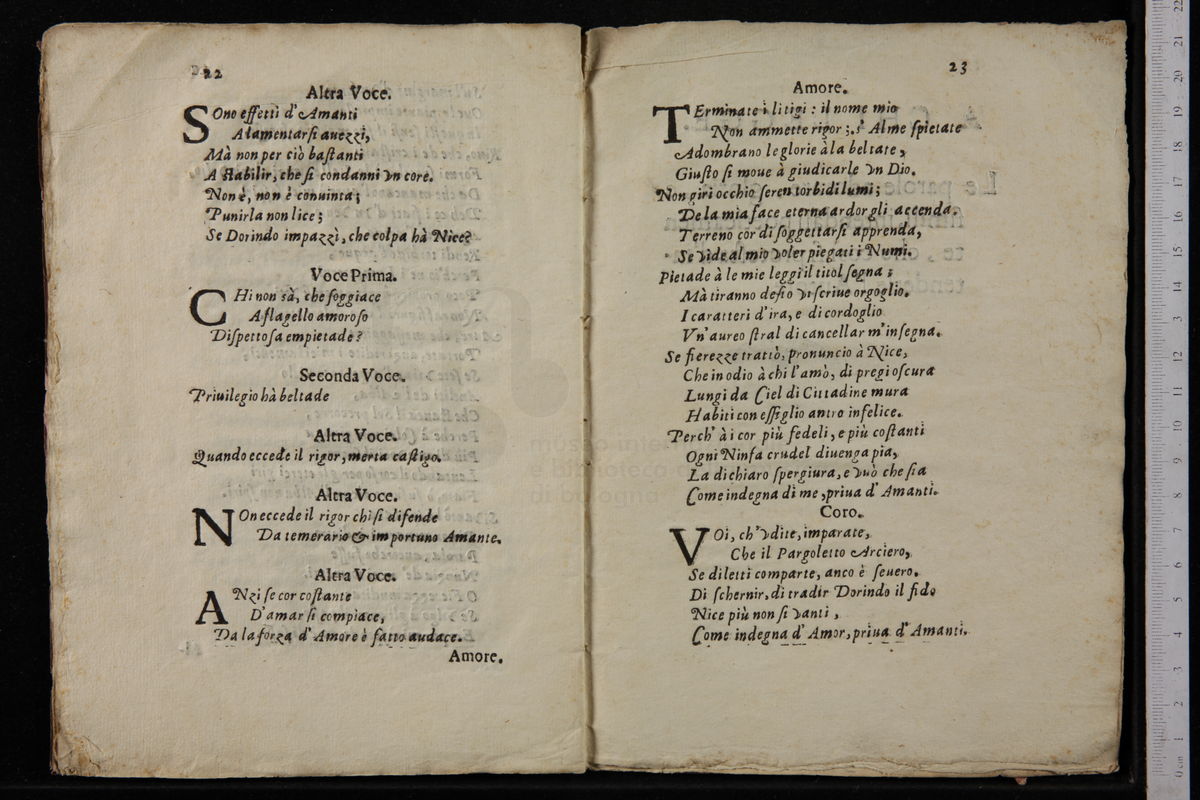 22
Altra Voce.
SOno effetti d'Amanti
A lamentarsi auezzi,
Mà non per ciò bastanti
A stabilir, che si condanni vn core.
Non è, non è conuinta;
Punirla non lice;
Se Dorindo impazzì, che colpa hà Nice?
Voce Prima.
CHi non sà, che soggiace
A flagello amoroso
Dispettosa empietade?
Seconda Voce.
Priuilegio hà beltade
Altra Voce.
Quando eccede il rigor, merta castigo.
Altra Voce.
NOn eccede il rigor chi si difende
Da temerario & importuno Amante.
Altra Voce.
ANzi se cor costante
D'amar si compiace,
Da la forza d'Amore è fatto audace.
Amore.
23
Amore.
TErminate i litigi: il nome mio
Non ammette rigor; s'Alme spietate
Adombrano le glorie à la beltate,
Giusto si moue à giudicarle vn Dio.
Non giri occhio seren torbidi lumi;
De la mia face eterna ardor gli accenda.
Terreno cor di soggettarsi apprenda,
Se vide al mio voler piegati i Numi.
Pietade à le mie leggi il titol segna;
Mà tiranno desio vi scriue orgoglio.
I caratteri d'ira, e di cordoglio
Vn'aureo stral di cancellar m'insegna.
Se fierezze trattò, pronuncio à Nice,
Che in odio à chi l'amò, di pregi oscura
Lungi da Ciel di Cittadine mura
Habiti con essiglio antro infelice.
Perch' à i cor più fedeli, e più costanti
Ogni Ninfa crudel diuenga pia,
La dichiaro spergiura, e vuò che sia
Come indegna di me, priua d'Amanti.
Coro.
VOi, ch'vdite, imparate,
Che il Pargoletto Arciero,
Se diletti comparte, anco è seuero.
Di schernir, di tradir Dorindo il fido
Nice più non si vanti,
Come indegna d'Amor, priua d'Amanti.